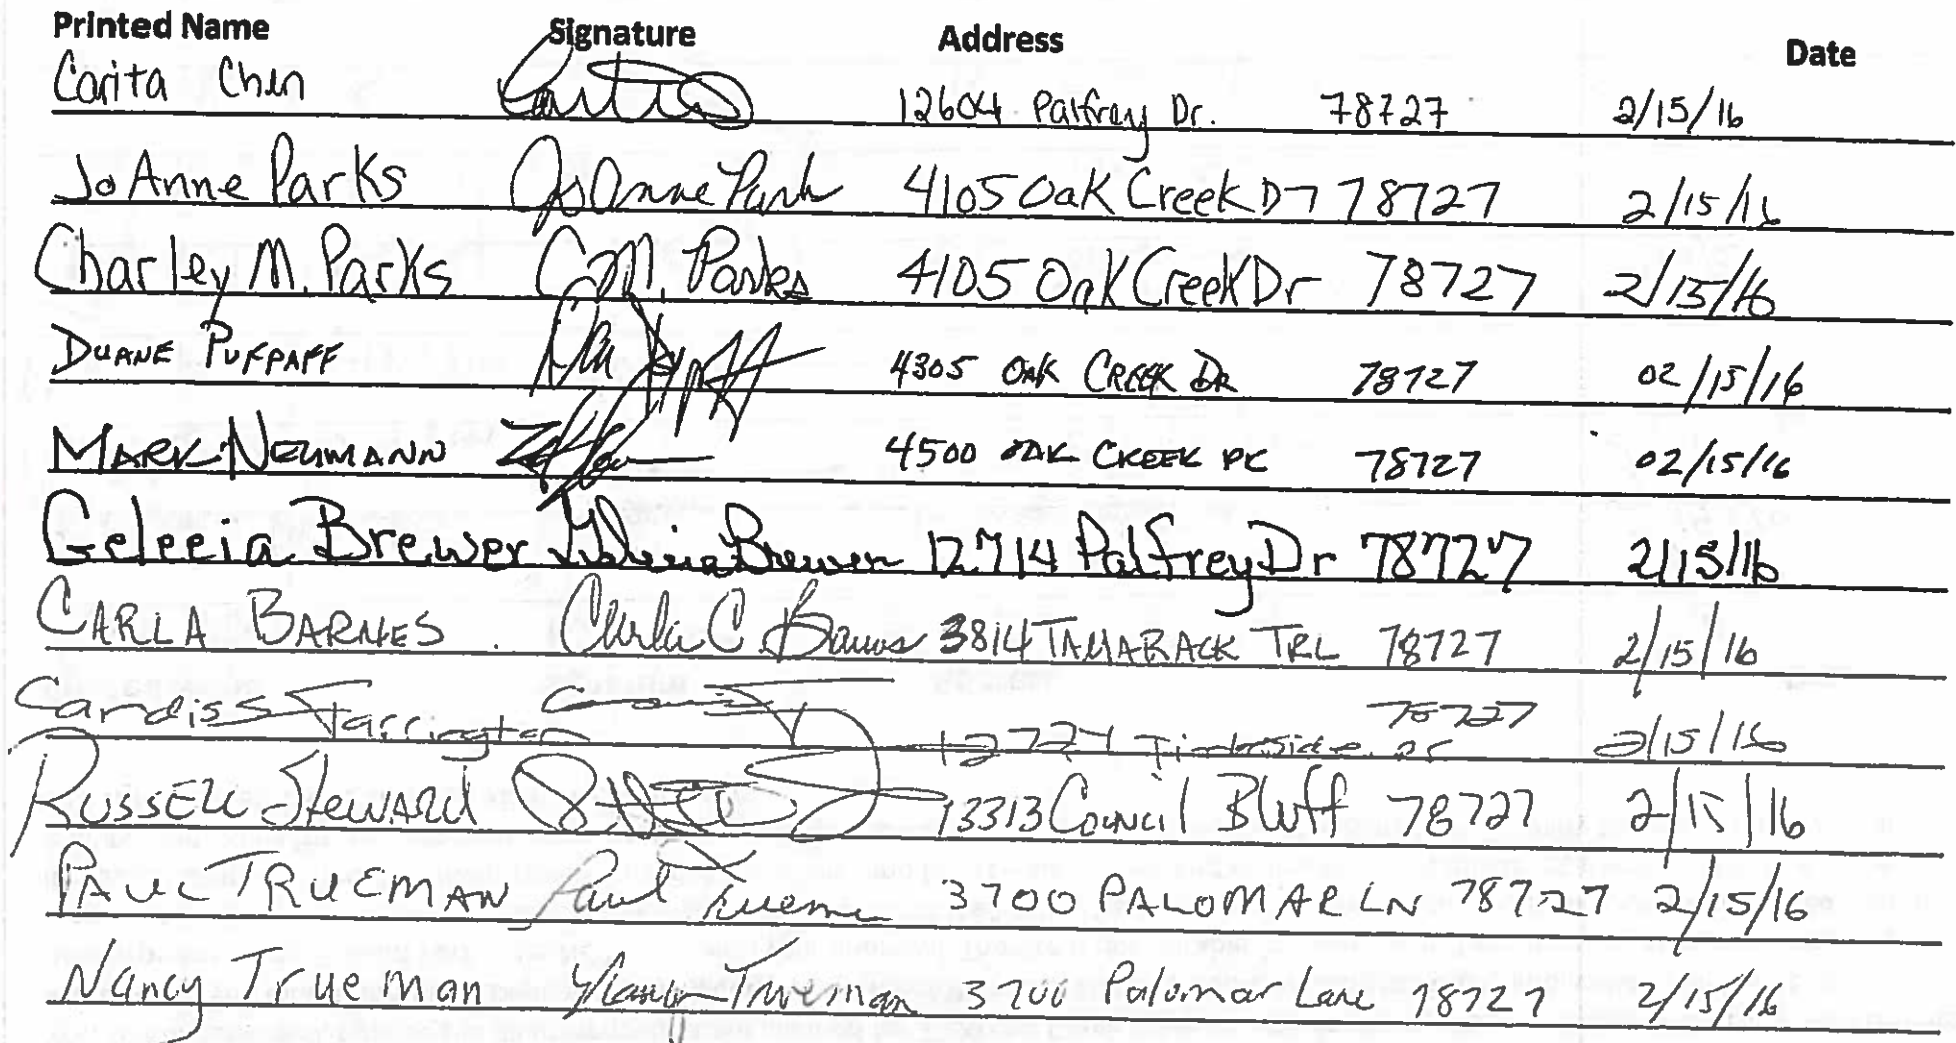 Printed Name Signature Address Date
Carita Chen 12604 Palfrey Dr. 78727 2/15/16
JoAnne Parks JoAnne Park 4105 Oak Creek Dr 78727 2/15/16
Charley M. Parks C.M. Parks 4105 Oak Creek Dr 78727 2/15/16
DUANE PUFPAFF 4305 OAK CREEK DR 78727 02/15/16
MARK NEUMANN 4500 OAK CREEK DR 78727 02/15/16
Geleeia Brewer Brewer 12714 Palfrey Dr 78727 2/15/16
CARLA BARNES Carla C. Barnes 3814 TAMARACK TRL 78727 2/15/16
Candiss Farrington 78727 2/15/16
RUSSELL STEWARD 13313 Council Bluff 78727 2/15/16
PAUL TRUEMAN Paul Trueman 3700 PALOMAR LN 78727 2/15/16
Nancy Trueman Nancy Trueman 3700 Palomar Lane 78727 2/15/16